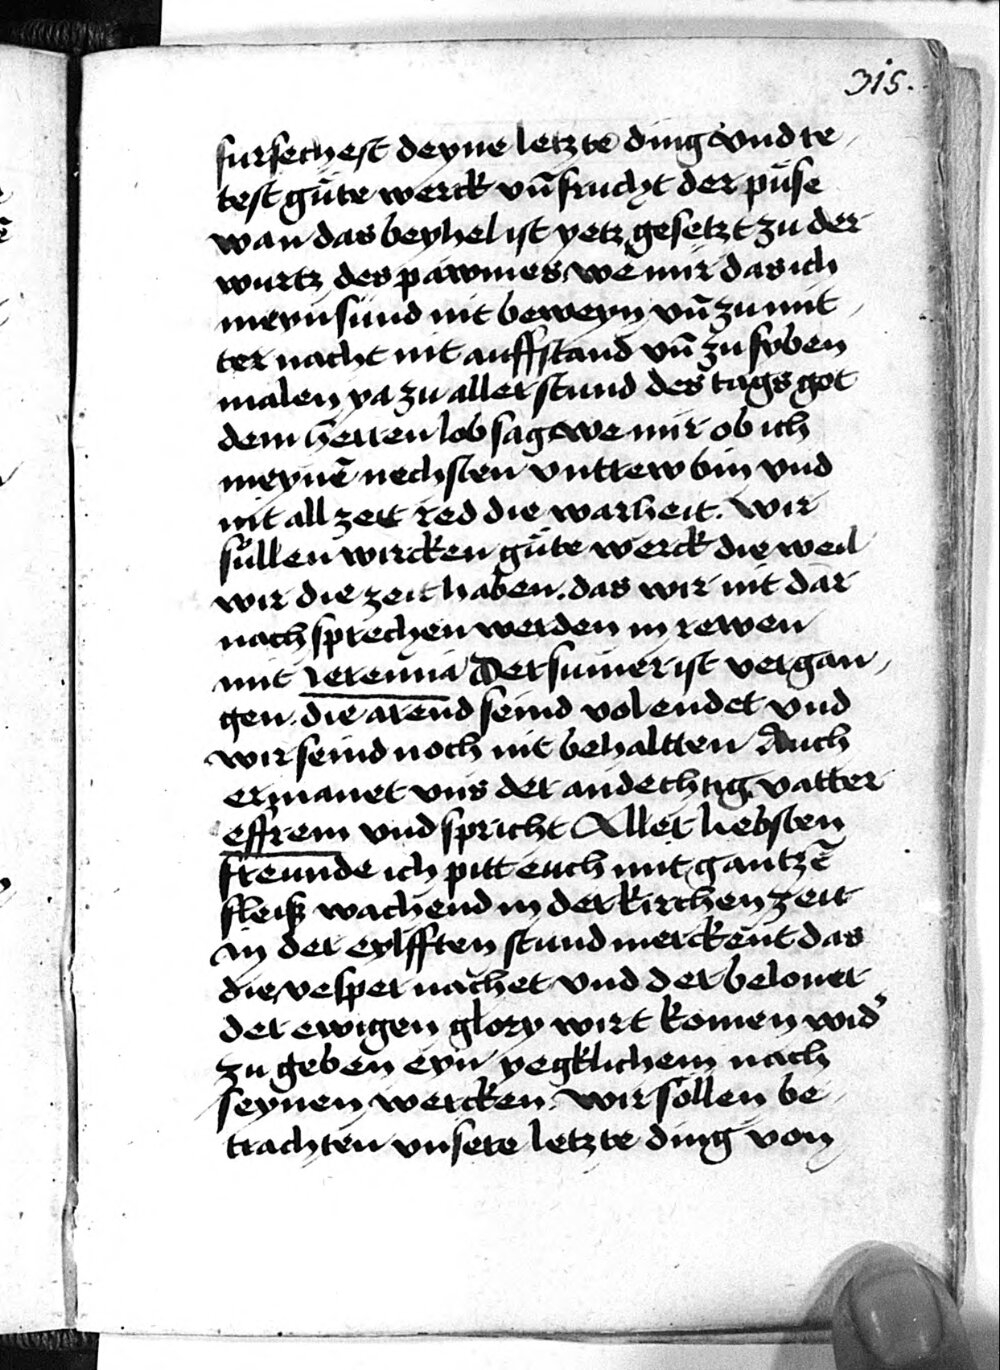 315.
fursechest deyne letzte ding vnd te
test gůte werck vn̄ frucht der půse
wan das beyhel ist yetz gesetzt zu der
wurtz des pawmes we mir das ich
meyn sünd nit beweyn vn̄ zu mit
ter nacht nit auffstand vn̄ zu syben
malen ya zu aller stund des tags got
dem herren lob sag we mir ob ich
meynē nechsten vntrew bin vnd
nit all zeit red die warheit. Wir
süllen wircken gůte werck die weil
wir die zeit haben. das wir nit dar
nach sprechen werden in rewen
mit ieremia Der sumer ist vergan
gen. die arend seind volendet vnd
wir seind noch nit behaltten Auch
ermanet vns der andechtig vatter
effrem vnd spricht Aller liebsten
freunde ich pitt euch mit gantzē
fleiß wachend in der kirchen zeit
in der eylfften stund merckent das
die vesper nachet vnd der beloner
der ewigen glory wirt komen wid'
zu geben eyn yegklichem nach
seynen wercken. wir söllen be
trachten vnsere letzte ding von